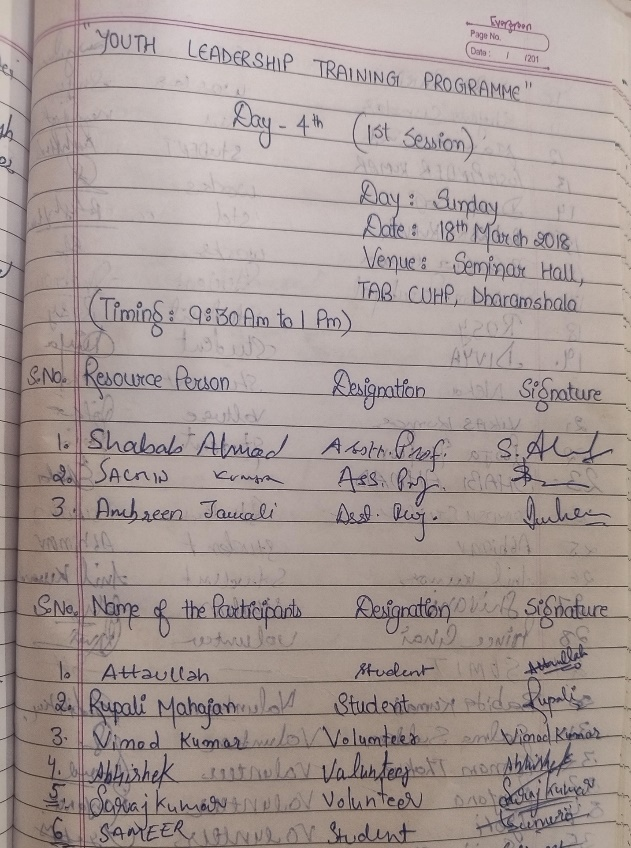 Evergreen
Page No.
Date : / /201
"YOUTH LEADERSHIP TRAINING PROGRAMME"
Day - 4th (1st Session)
Day : Sunday
Date : 18th March 2018
Venue : Seminar Hall,
TAB CUHP, Dharamshala
(Timing : 9:30 Am to 1 Pm)
S.No. Resource Person Designation Signature
1. Shabab Ahmad Asstt. Prof.
2. SACHIN Kumar Ass. Prof.
3. Ambreen Jamali Asst. Prof.
S.No. Name of the Participants Designation Signature
1. Attaullah Student Attaullah
2. Rupali Mahajan Student Rupali
3. Vinod Kumar Volunteer Vinod Kumar
4. Abhishek Volunteer Abhishek
5 Saroj Kumar Volunteer Saroj Kumar
6 SAMEER Student Sameer